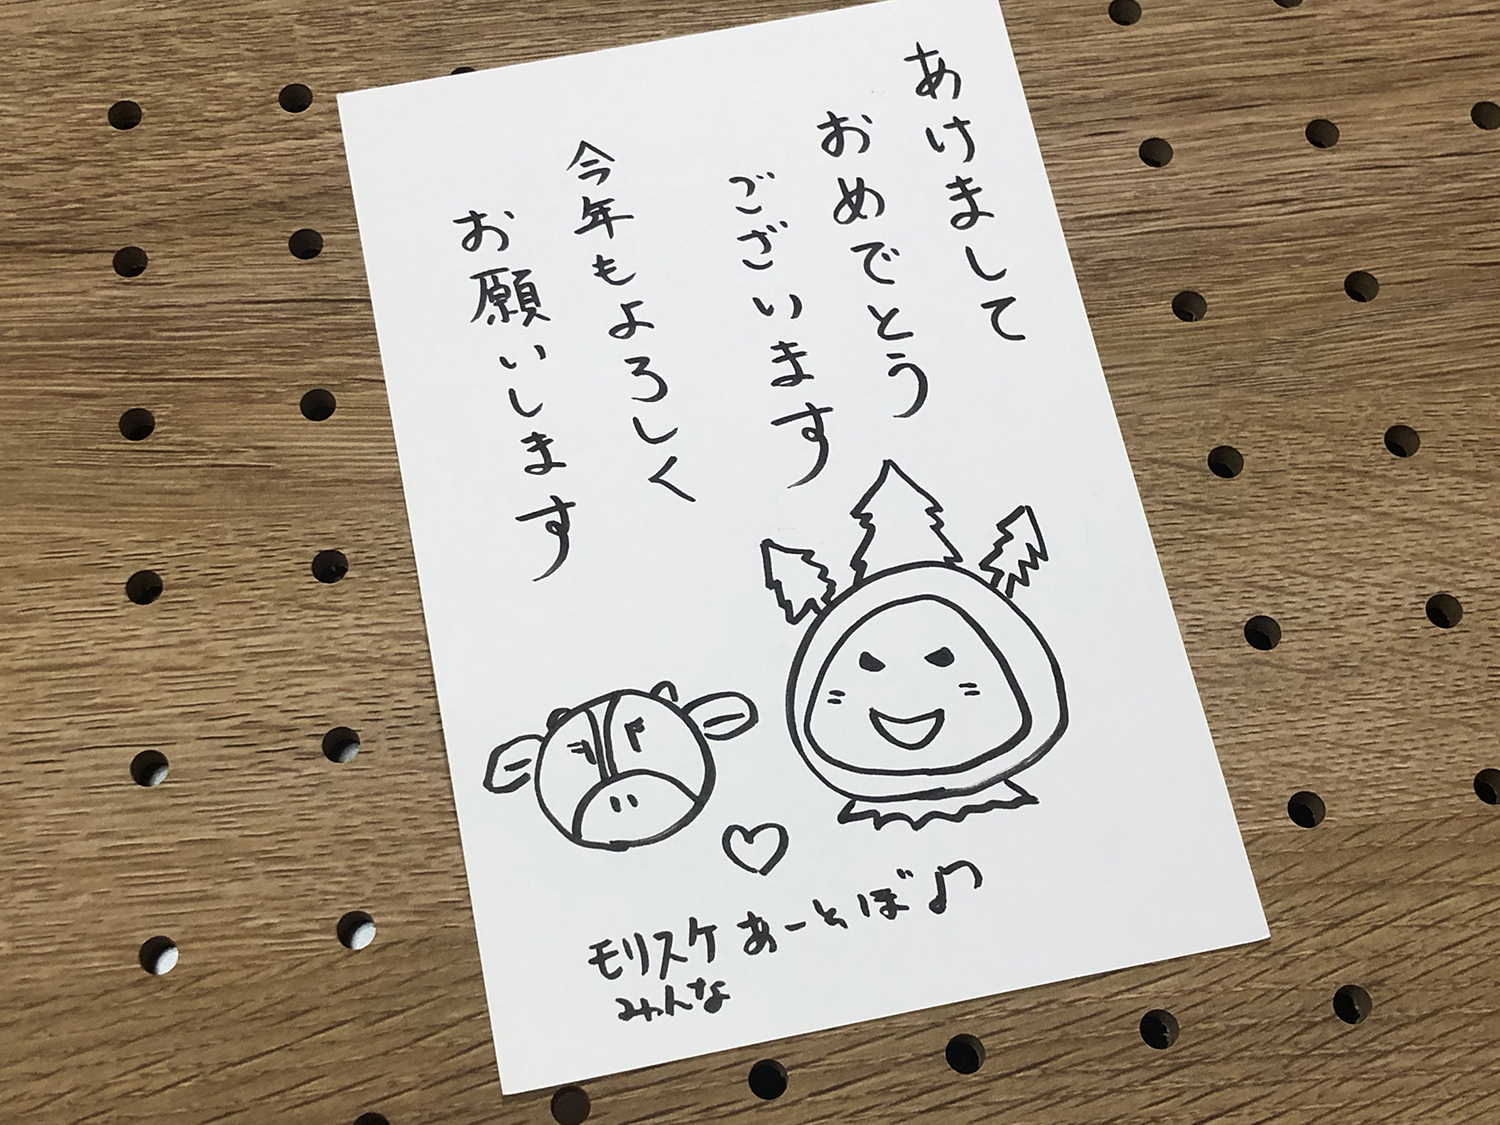 あけまして
おめでとう
ございます
今年もよろしく
お願いします
モリスケ あーとぼ♪
みんな